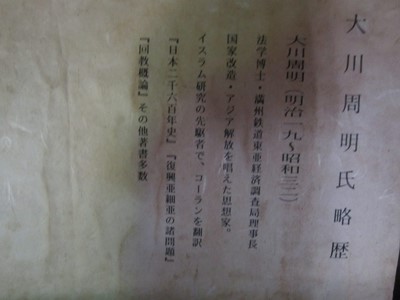 大川周明氏略歴
大川周明（明治一九〜昭和三二）
法学博士・満州鉄道東亜経済調査局理事長
国家改造・アジア解放を唱えた思想家。
イスラム研究の先駆者で、コーランを翻訳
『日本二千六百年史』『復興亜細亜の諸問題』
『回教概論』その他著書多数